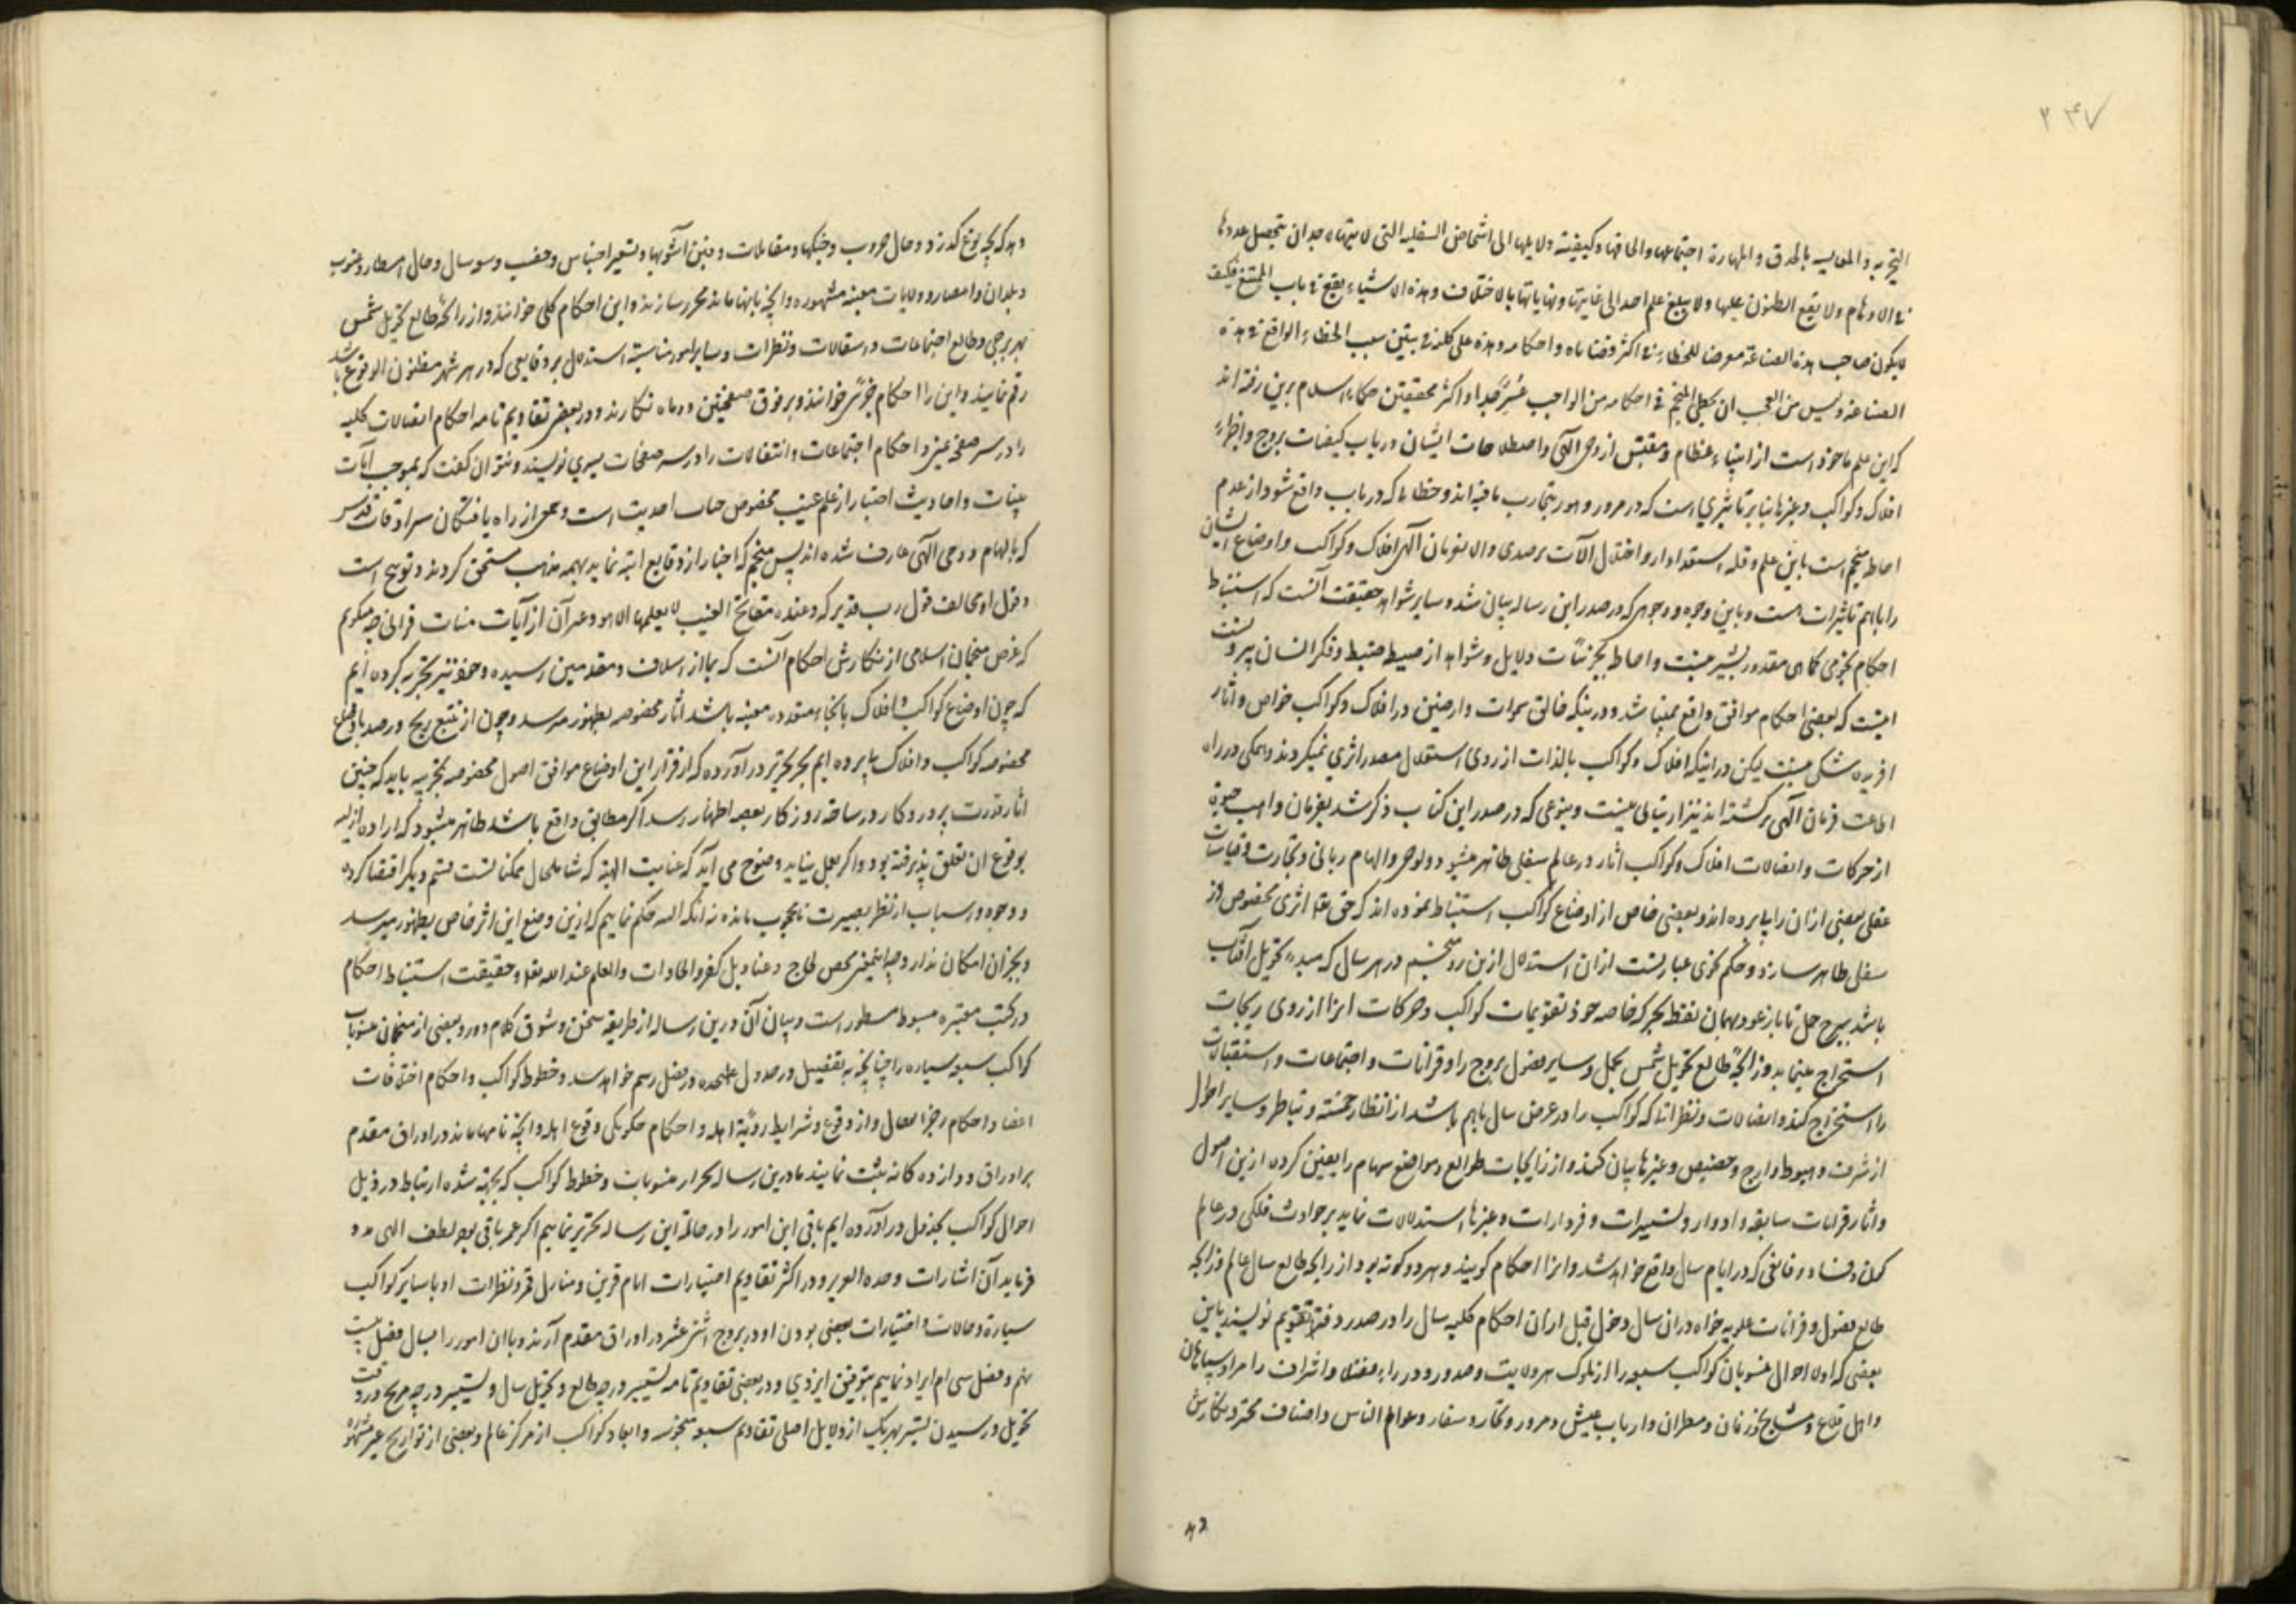 ۲۴۷
التجربه و المقاییسه بالحذق و المهارة اجتماعها و الحاقها و کیفیته دلایلها الی اشخاص السفلیه التی لا
فی الاوهام و لا یقع الظنون علیها و لا یبلغ علم احد الی غایتها و نهایاتها بالاختلاف و هذه الاشیاء یقع فی باب الممتنع فکیف
لا یکون صاحب هذه الصناعة معرضا للخطاء فی اکثر قضایاه و احکامه و هذه علی یتبین سبب الخطاء الواقع فی هذه
الصناعة و لیس من العجب ان یخطی المنجم فی احکامه من الواجب و اکثر محققین حکماء اسلام برین رفته اند
که این علم ماخوذ است از انبیاء عظام و مقتبس از وحی الهی و اصطلاحات ایشان در باب کیفیات بروج و اجزاء
افلاک و کواکب و غیرها بنابر تاثیری است که در مرور دهور بتجارب یافته اند و خطاها که در باب واقع شود از عدم
احاطه منجم است باین علم و قله استعداد او و اختلال آلات رصدی و الا بفرمان الهی افلاک و کواکب و اوضاع ایشان
را باهم تاثیرات هست و باین وجوه و وجوهی که در صدر این رساله بیان شد و سایر شواهد حقیقت آنست که استنباط
احکام نجومی کماهی مقدور بشر نیست و احاطه بجزئیات دلایل و شواهد از ضبط و فکر انسان بیرونست
اینست که بعضی احکام موافق واقع نمیباشد و درینکه خالق سموات و ارضین در افلاک و کواکب خواص و آثار
آفریده شکی نیست لیکن در اینکه افلاک و کواکب بالذات از روی استقلال مصدر اثری نمیگردند و همگی در راه
اطاعت فرمان الهی سرگشته اند نیز ارتیابی نیست و بنوعی که در صدر این کتاب ذکر شد بفرمان واهب حیوة
از حرکات و اتصالات افلاک و کواکب آثار در عالم سفلی ظاهر میشود و بوحی و الهام ربانی و تجارب و قیاسات
عقلی بعضی از ان را پا برده اند و بعضی خاص از اوضاع کواکب استنباط نموده اند که حق تعالی اثری مخصوص در
سفلی ظاهر سازد و حکم نجومی عبارتست از ان استدلال ازین رو منجم در هر سال که مبدء تحویل آفتاب
باشد ببرج حمل تا باز عود بهمان نقطه بحرکه خاصه خود تقویمات کواکب و حرکات انرا از روی زیجات
استخراج مینماید و زایجه طالع تحویل شمس بحمل و سایر فصول بروج را و قرانات و اجتماعات و استقبالات
را استخراج کند و اتصالات و نظراتا که کواکب را در عرض سال باهم باشد از انظار خمسه و تناظر و سایر احوال
از شرف و هبوط و اوج و حضیض و غیرها بیان کند و از زایجات طوالع و مواضع سهام را تعیین کرده ازین اصول
و آثار قرانات سابقه و ادوار و تسییرات و فردارات و غیرها استدلالات نماید بر حوادث فلکی در عالم
کون و فساد و وقایعی که در ایام سال واقع خواهد شد و انرا احکام گویند و هر دو گونه بود از زایجه طالع سال عالم و زایجه
طالع فصول و قرانات علویه خواه در ان سال و خواه قبل از ان احکام کلیه سال را در صدر دفتر تقویم نویسند باین
بعضی که اولا احوال منسوبات کواکب سبعه را از ملوک هر ولایت و صدور و وزراء و قضات و اشراف و امراء و سپاهیان
و اهل قلاع و مشایخ و زنان و مطربان و ارباب عیش و سرور و تجار و سفار و عوام الناس و اصناف محترفه نگارش
دهد
دهد که بچه نوع گذرد و حال حروب و جنگها و مقاتلات و فتن و آشوبها و تسعیر اجناس و خصب و سوسال و حال امطار و هبوب
و بلدان و امصار و ولایات معینه مشهوره و آنچه بانها ماند محرر سازند و این احکام کلی خوانند و از زایجه طالع تحویل شمس
بهر برجی و طالع اجتماعات و استقبالات و نظرات و سایر امور مناسبه استدلال بر وقایعی که در هر شهر مظنون الوقوع باشد
رقم نمایند و این را احکام جزئی خوانند و بر فوق صفحتین دو ماه نگارند و در بعضی تقاویم تامه احکام اتصالات کلیه
را در سر صفحه یمنی و احکام اجتماعات و انتقالات را در سر صفحات یسری نویسند و نتوان گفت که بموجب آیات
بینات و احادیث اخبار از علم غیب مخصوص جناب احدیت است و بعضی از راه یافتگان سرادقات قدس
که بالهام و وحی الهی عارف شده اند پس منجم که اخبار از وقایع آتیه نماید بهمه مذهب مستحق گردند و توبیخ است
و قول او مخالف قول رب قدیر که و عنده مفاتح الغیب لا یعلمها الا هو و غیر آن از آیات بینات قرآنی چه میگوئیم
که غرض منجمان اسلامی از نگارش احکام آنست که بما از اسلاف و متقدمین رسیده و خود نیز تجربه کرده ایم
که چون اوضاع کواکب و افلاک بانحاء متعدده معینه باشد آثار مخصوصه بظهور میرسد و چون از تتبع زیج و رصد باوضاع
مخصوصه کواکب و افلاک پا برده ایم بحیز تحریر در آورده که از قرار این اوضاع موافق اصول مخصوصه تجربیه باید که چنین
آثار قدرت پروردگار در ساحه روزگار بعرصه اظهار رسد اگر مطابق واقع باشد ظاهر میشود که اراده ازلیه
بوقوع ان تعلق پذیرفته بود و اگر بعمل نیاید وضوح می آید که عنایت الهیه که شامل حال ممکناتست قسم دیگر اقتضا کرده
و وجوه و اسباب از نظر بصیرت ما محجوب مانده نه آنکه البته حکم نماییم که ازین وضع این اثر خاص بظهور میرسد
و بجز ان امکان ندارد چه این معنی محض لجاج و عناد بل کفر و الحاد است و العلم عند الله تعالی و حقیقت استنباط احکام
در کتب معتبره مبسوطه مسطور است و بیان آن درین رساله از طریقه سخن و شوق کلام دور و بعضی از منجمان منسوبات
کواکب سبعه سیاره را چنانچه بتفصیل و در جدول علیحده در فصل رسم خواهد شد و خطوط کواکب و احکام اختلاجات
اعضا و احکام و از وقوع و شرایط رؤیة اهله و احکام وقوع اهله و آنچه بانها ماند در اوراق مقدم
بر اوراق دوازده گانه ثبت نمایند ما درین رساله منسوبات و خطوط کواکب که بجهة شده ارتباط در ذیل
احوال کواکب بجدول در آورده ایم باقی این امور را در خاتمة این رساله تحریر نماییم اگر عمر باقی بود لطف الهی مدد
فرماید آن اشارات و در اکثر تقاویم اختیارات ایام قرین و منازل قمر و نظرات او با سایر کواکب
سیاره و حالات و اختیارات بودن او در بروج اثنی عشر در اوراق مقدم آرند و باان امور را فصل بیست
نهم و فصل سی ام ایراد نماییم بتوفیق ایزدی و در بعضی تقاویم تامه تسییر درجه طالع و تحویل سال و تسییر درجه وقت
تحویل و رسیدن تسییر بهر یک از دلایل اصلی تقاویم سبعه و ابعاد کواکب از مرکز عالم و بعضی از تواریخ غیر مشهوره